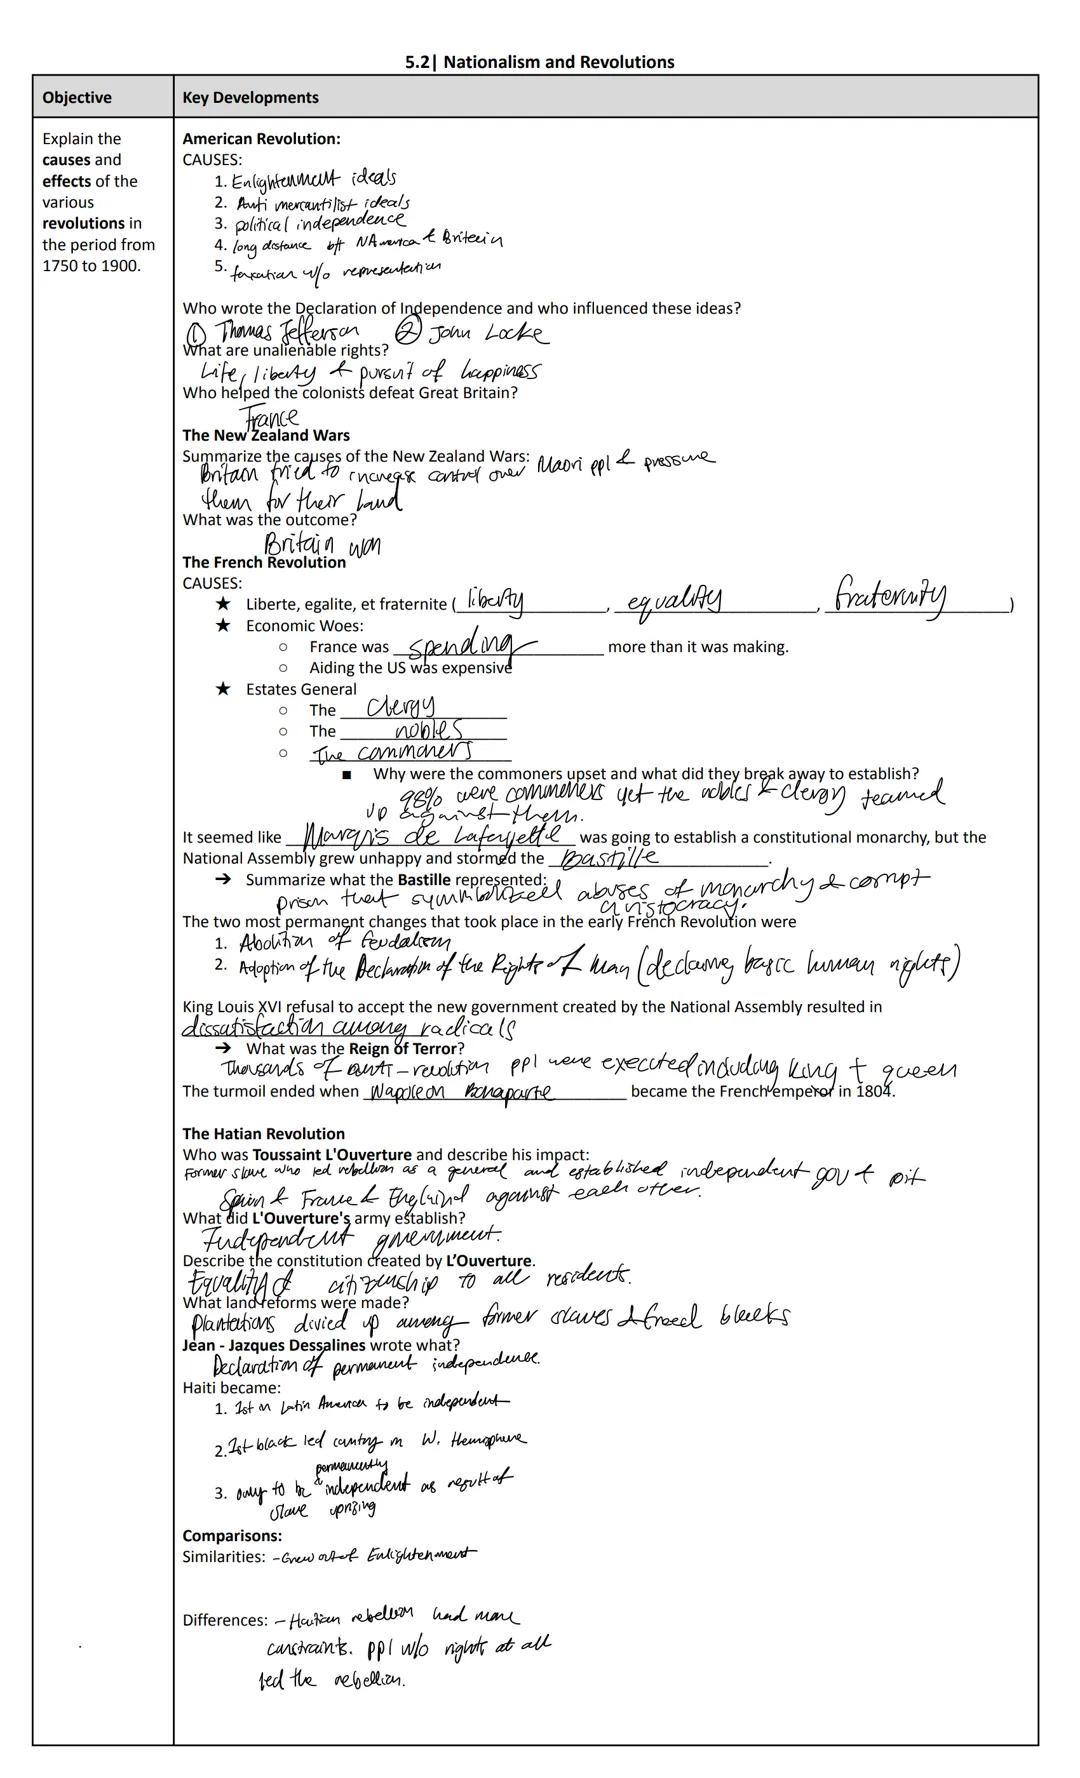 5.2| Nationalism and Revolutions
Objective
Key Developments
Explain the
causes and
effects of the
various
revolutions in
the period from
1750 to 1900.
American Revolution:
CAUSES:
1. Enlightenment ideals
2. Anti mercantilist ideals
3. political independence
4. long distance btt NAmerica & Britain
5. taxation w/o representation
Who wrote the Declaration of Independence and who influenced these ideas?
① Thomas Jefferson ② John Locke
What are unalienable rights?
Life, liberty & pursuit of happiness
Who helped the colonists defeat Great Britain?
France
The New Zealand Wars
Summarize the causes of the New Zealand Wars:
Britain tried to increase control over Maori ppl & pressure
them for their land
What was the outcome?
Britain won
The French Revolution
CAUSES:
★ Liberte, egalite, et fraternite (liberty, equality, fraternity)
★ Economic Woes:
○ France was spending more than it was making.
○ Aiding the US was expensive
★ Estates General
○ The clergy
○ The nobles
○ The commoners
■ Why were the commoners upset and what did they break away to establish?
98% were commoners yet the nobles & clergy teamed
up against them.
It seemed like Marquis de Lafayette was going to establish a constitutional monarchy, but the
National Assembly grew unhappy and stormed the Bastille.
➔ Summarize what the Bastille represented:
prison that symbolized abuses of monarchy & corrupt
aristocracy.
The two most permanent changes that took place in the early French Revolution were
1. Abolition of feudalism
2. Adoption of the Declaration of the Rights of Man (declaring basic human rights)
King Louis XVI refusal to accept the new government created by the National Assembly resulted in
dissatisfaction among radicals
➔ What was the Reign of Terror?
Thousands of anti-revolution ppl were executed including king + queen
The turmoil ended when Napoleon Bonaparte became the French emperor in 1804.
The Hatian Revolution
Who was Toussaint L'Ouverture and describe his impact:
Former slave who led rebellion as a general and established independent gov + pit
Spain & France & England against each other.
What did L'Ouverture's army establish?
Independent government.
Describe the constitution created by L'Ouverture.
Equality & citizenship to all residents.
What land reforms were made?
Plantations divied up among former slaves & freed blacks
Jean - Jazques Dessalines wrote what?
Declaration of permanent independence.
Haiti became:
1. 1st in Latin America to be independent
2. 1st black led country in W. Hemisphere
permanently
3. only to be independent as result of
slave uprising
Comparisons:
Similarities: - Grew out of Enlightenment
Differences: - Haitian rebellion had more
constraints. ppl w/o rights at all
led the rebellion.